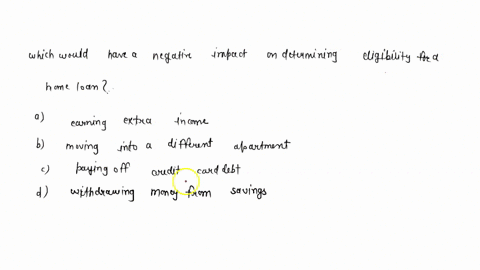 which would have a negative impact on determining eligibility for a
home loan?
a) earning extra income
b) moving into a different apartment
c) paying off credit card debt
d) withdrawing money from savings